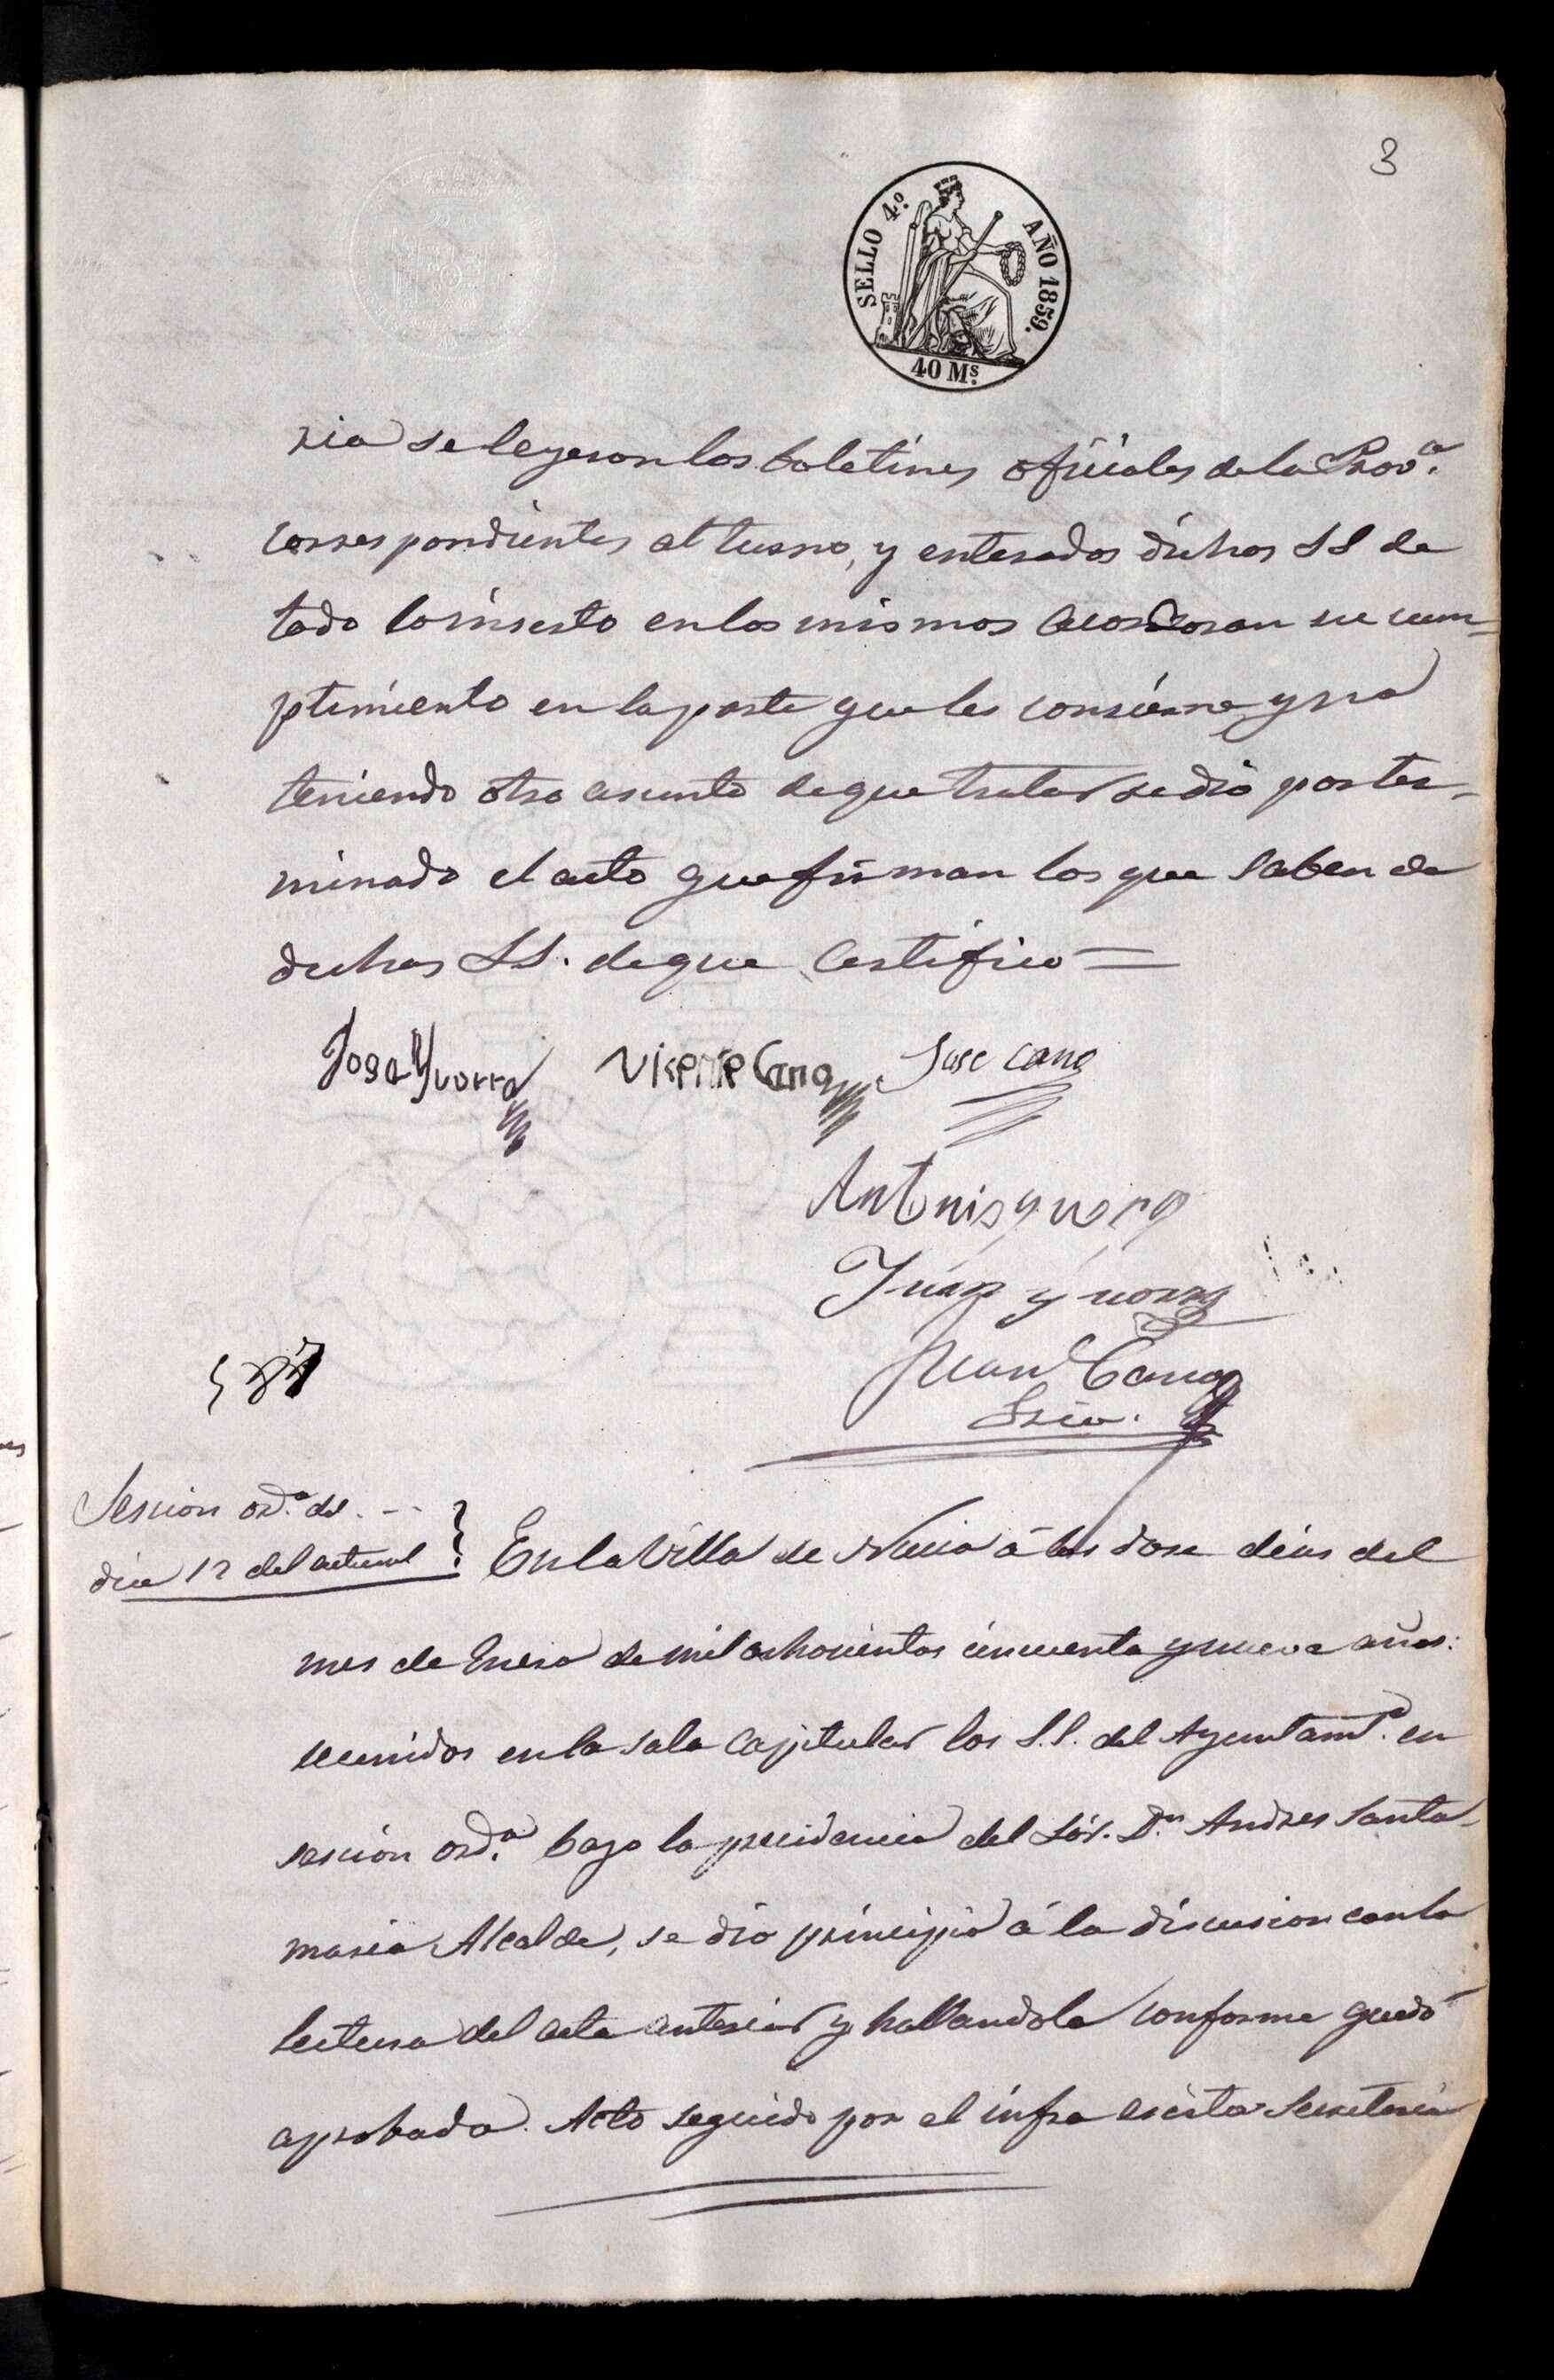 3
SELLO 4.º AÑO 1859.
40 Ms.
ria se leyeron los boletines oficiales de la Prov.ª
correspondientes al turno, y enterados dichos SS de
todo lo inserto en los mismos acordaron su cum=
plimiento en la parte que les consierne, y no
teniendo otro asunto de que tratar se dió por ter-
minado el acto que firman los que saben de
dichos SS. de que certifico=
Jose Yvorra Vicente Cano Jose Cano
Antonio yvorra
Juan yvorra
Juan Cano
Srio.
Sesion ord.ª del
dia 12 del actual
En la Villa de Nucia á los dose dias del
mes de Enero de mil ochocientos cincuenta y nueve años:
reunidos en la sala Capitular los S.S. del Ayuntam.to en
sesion ord.ª bajo la presidencia del Sór. D.n Andres Santa-
maria Alcalde, se dio principio á la discusion con la
lectura del acta anterior y hallandola conforme quedó
aprobada. Acto seguido por el infra escrito Secretario